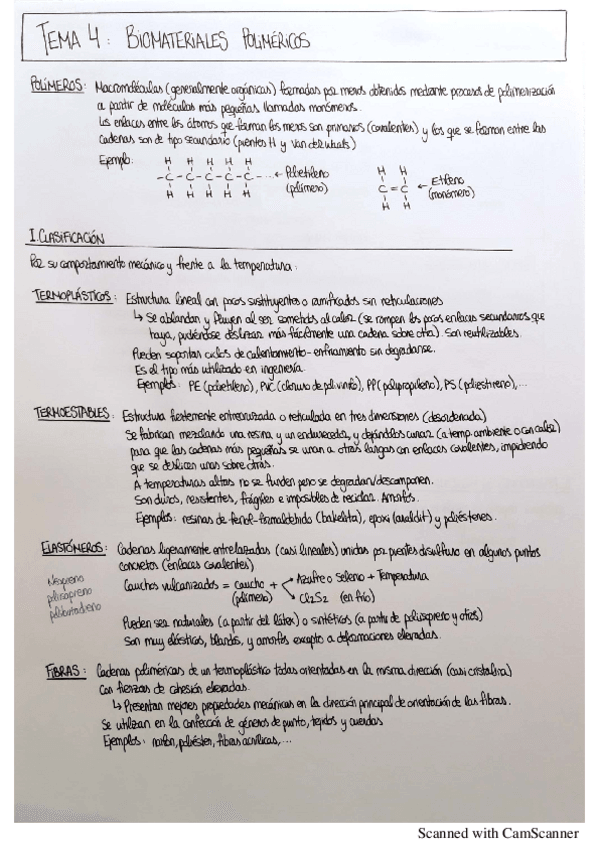 TEMA 4: BIOMATERIALES POLIMÉRICOS
POLÍMEROS: Macromoléculas (generalmente orgánicas) formadas por meros obtenidos mediante procesos de polimerización
a partir de moléculas más pequeñas llamadas monómeros.
Los enlaces entre los átomos que forman los meros son primarios (covalentes) y los que se forman entre las
cadenas son de tipo secundario (puentes H y Van der Waals)
Ejemplo:
H H H H H
-C-C-C-C-C-... ← Polietileno
(polímero)
H H H H H
H H
C=C ← Etileno
(monómero)
H H
I. CLASIFICACIÓN
Por su comportamiento mecánico y frente a la temperatura:
TERMOPLÁSTICOS: Estructura lineal con pocos sustituyentes o ramificados sin reticulaciones
↳ Se ablandan y fluyen al ser sometidos al calor (se rompen los pocos enlaces secundarios que
haya, pudiéndose deslizar más fácilmente una cadena sobre otra). Son reutilizables.
Pueden soportar ciclos de calentamiento-enfriamiento sin degradarse.
Es el tipo más utilizado en ingeniería.
Ejemplos: PE (polietileno), PVC (cloruro de polivinilo), PP (polipropileno), PS (poliestireno),...
TERMOESTABLES: Estructura fuertemente entrecruzada o reticulada en tres dimensiones (desordenada)
Se fabrican mezclando una resina y un endurecedor, y dejándolos curar (a temp. ambiente o con calor)
para que las cadenas más pequeñas se unan a otras largas con enlaces covalentes, impidiendo
que se deslicen unas sobre otras.
A temperaturas altas no se funden pero se degradan/descomponen.
Son duros, resistentes, frágiles e imposibles de reciclar. Amorfos.
Ejemplos: resinas de fenol-formaldehido (bakelita), epoxi (araldit) y poliésteres.
ELASTÓMEROS: Cadenas ligeramente entrelazadas (casi lineales) unidas por puentes disulfuro en algunos puntos
concretos (enlaces covalentes)
Neopreno
poliisopreno
polibutadieno
Cauchos vulcanizados = caucho + Azufre o Seleno + Temperatura
(polímero) Cl2S2 (en frío)
Pueden ser naturales (a partir del látex) o sintéticos (a partir de poliisopreno y otros)
Son muy elásticos, blandos, y amorfos excepto a deformaciones elevadas.
FIBRAS: Cadenas poliméricas de un termoplástico todas orientadas en la misma dirección (casi cristalina)
Con fuerzas de cohesión elevadas.
↳ Presentan mejores propiedades mecánicas en la dirección principal de orientación de las fibras.
Se utilizan en la confección de géneros de punto, tejidos y cuerdas
Ejemplos: nailon, poliéster, fibras acrílicas,...
Scanned with CamScanner